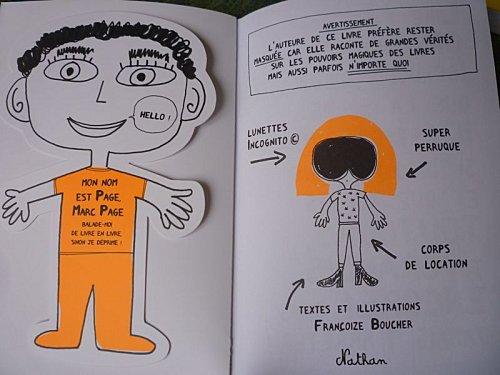 HELLO !
MON NOM
EST PAGE,
MARC PAGE
BALADE-MOI
DE LIVRE EN LIVRE,
SINON JE DÉPRIME !
AVERTISSEMENT
L'AUTEURE DE CE LIVRE PRÉFÈRE RESTER
MASQUÉE CAR ELLE RACONTE DE GRANDES VÉRITÉS
SUR LES POUVOIRS MAGIQUES DES LIVRES
MAIS AUSSI PARFOIS N'IMPORTE QUOI
LUNETTES
INCOGNITO ©
SUPER
PERRUQUE
CORPS
DE LOCATION
TEXTES ET ILLUSTRATIONS
FRANÇOIZE BOUCHER
Nathan